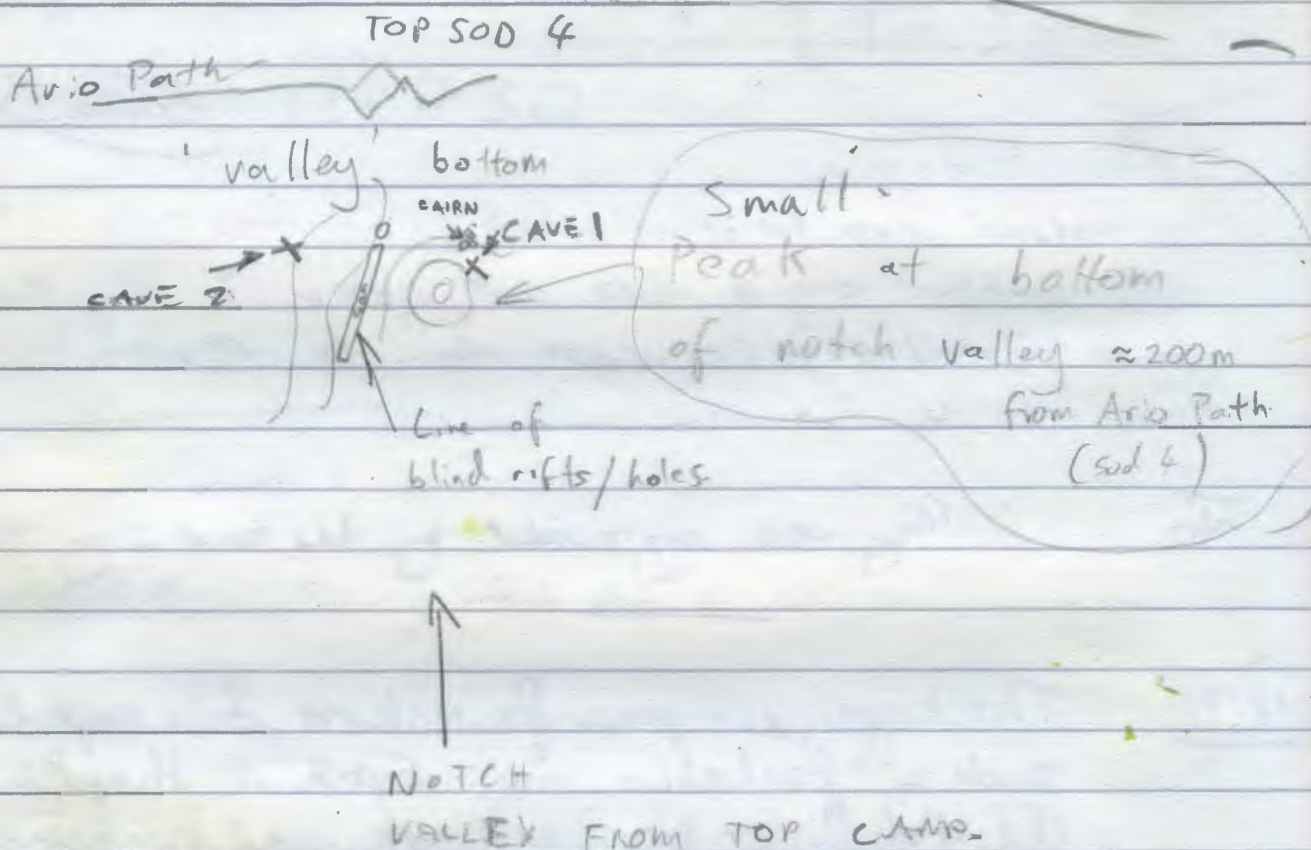 TOP SOD 4
Ario Path
'valley' bottom
CAIRN
CAVE 1
CAVE 2
Small
Peak at bottom
of notch valley ≈200m
from Ario Path
(sod 4)
Line of
blind rifts/holes
NOTCH
VALLEY FROM TOP CAMP.